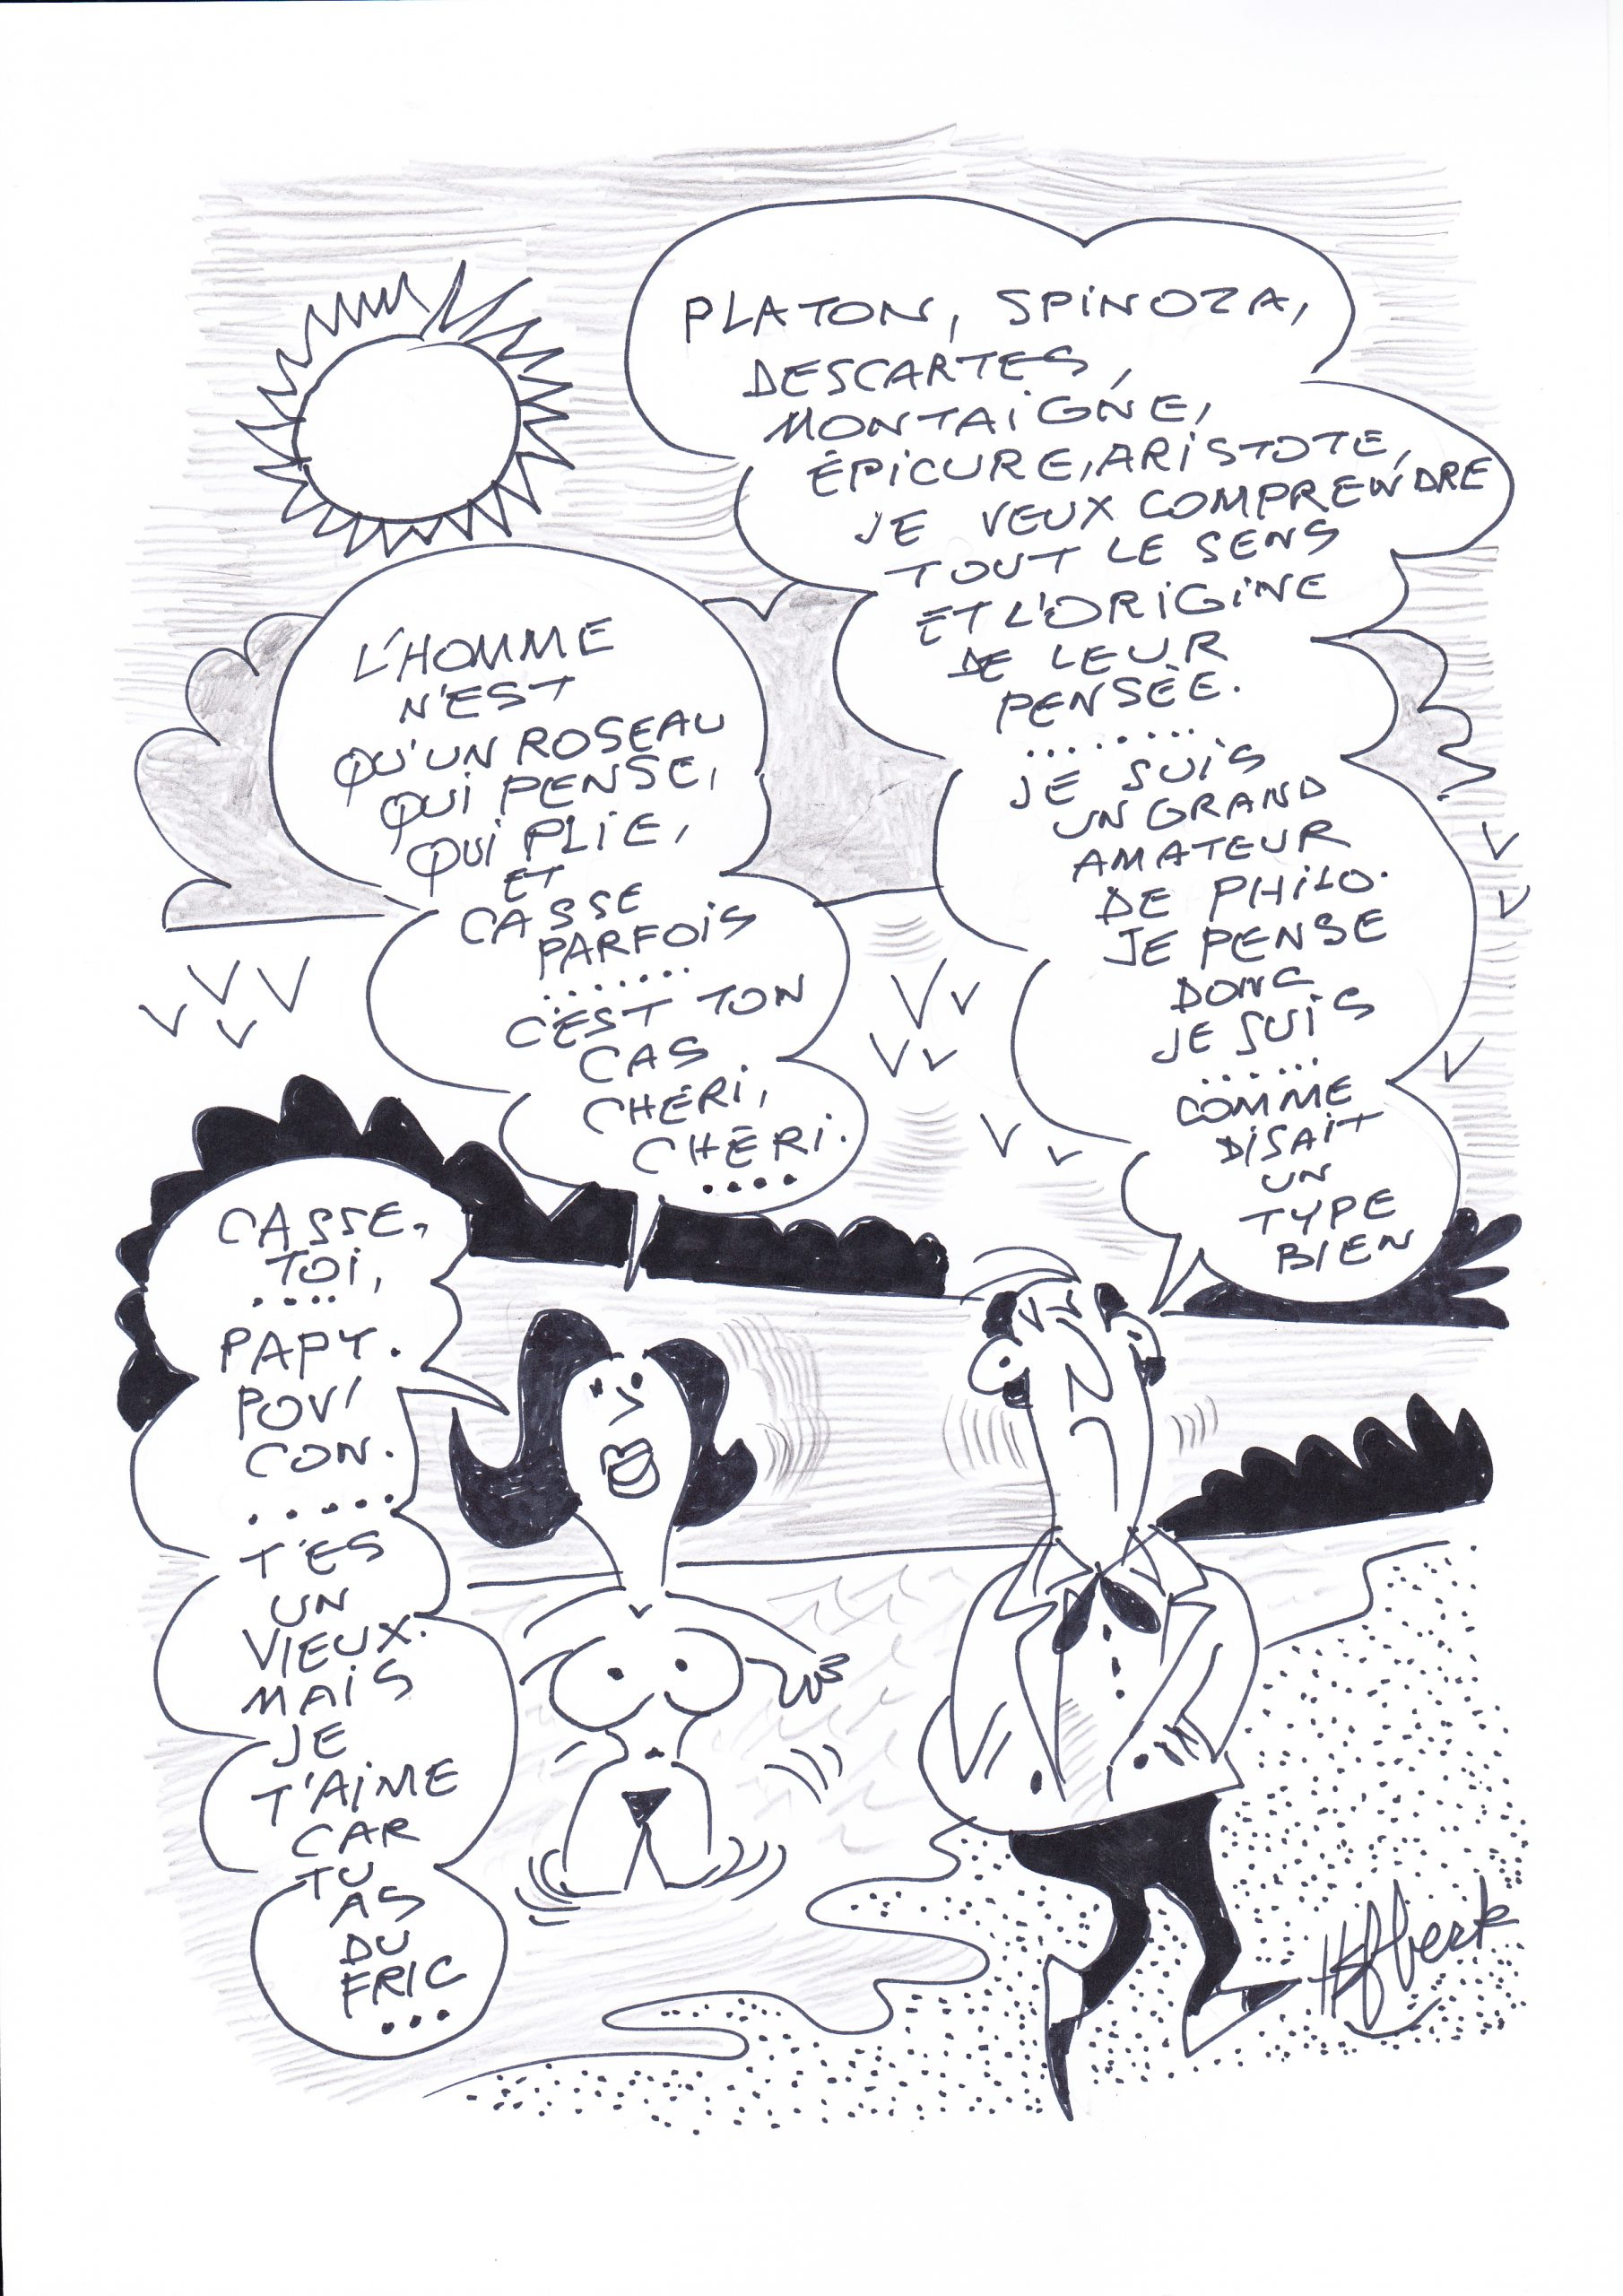 PLATON, SPINOZA,
DESCARTES,
MONTAIGNE,
ÉPICURE, ARISTOTE,
JE VEUX COMPRENDRE
TOUT LE SENS
ET L'ORIGINE
DE LEUR
PENSÉE.
........
JE SUIS
UN GRAND
AMATEUR
DE PHILO.
JE PENSE
DONC
JE SUIS
......
COMME
DISAIT
UN
TYPE
BIEN
L'HOMME
N'EST
QU'UN ROSEAU
QUI PENSE,
QUI PLIE,
ET
CASSE
PARFOIS
.......
C'EST TON
CAS
CHÉRI,
CHÉRI.
....
CASSE,
TOI,
....
PAPY.
POV'
CON.
.....
T'ES
UN
VIEUX.
MAIS
JE
T'AIME
CAR
TU
AS
DU
FRIC
...